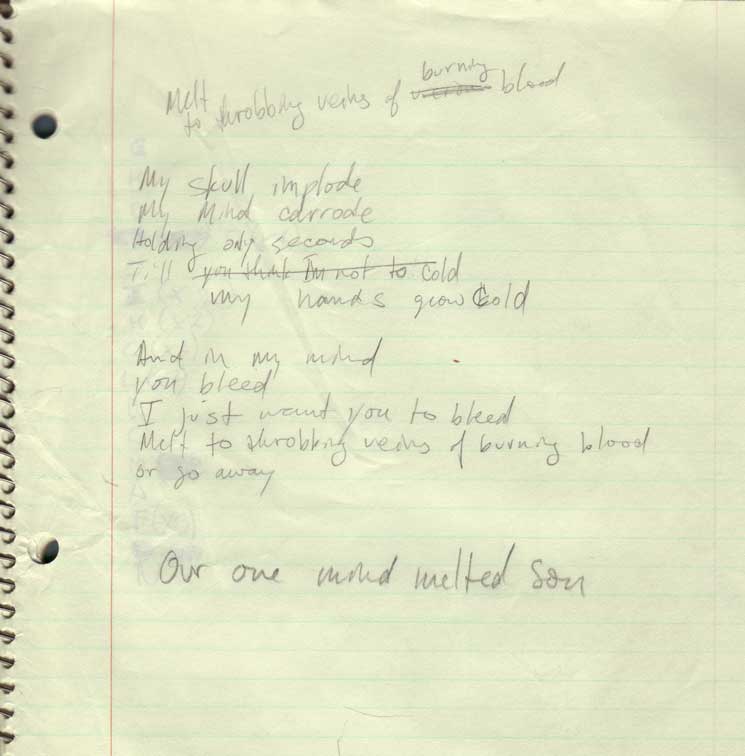 Melt
to throbbing veins of burning blood
My skull implode
My Mind carrode
Holding only seconds
Till you think I'm not to cold
my hands grow cold
And in my mind
you bleed
I just want you to bleed
Melt to throbbing veins of burning blood
or go away
Our one mind melted son